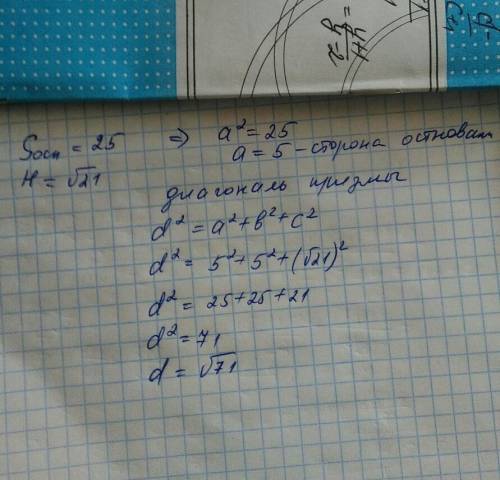 Sосн = 25 => a² = 25
a = 5 - сторона основан
H = √21
диагональ призмы
d² = a² + b² + c²
d² = 5² + 5² + (√21)²
d² = 25 + 25 + 21
d² = 71
d = √71